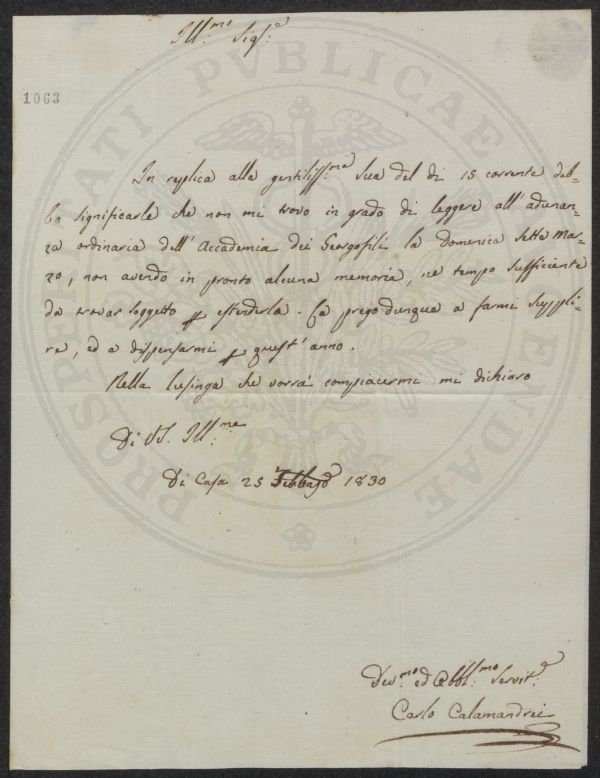 Ill:mo Sig:e
1063
In replica alla gentiliss:ma Sua del di 15 corrente deb-
bo significarle che non mi trovo in grado di leggere all'adunan-
za ordinaria dell'Accademia dei Georgofili la Domenica Sette Mar-
zo, non avendo in pronto alcuna memoria, ne tempo sufficiente
da trovar soggetto p estenderla. La prego dunque a farmi suppli-
re, ed a dispensarmi p quest'anno.
Nella lusinga che vorrà compiacermi mi dichiaro
Di VS. Ill:ma
Di Casa 25 Febbrajo 1830
Dev:mo ed Obbl:mo Servit:e
Carlo Calamandrei
PROSPERITATI PVBLICAE AVGENDAE